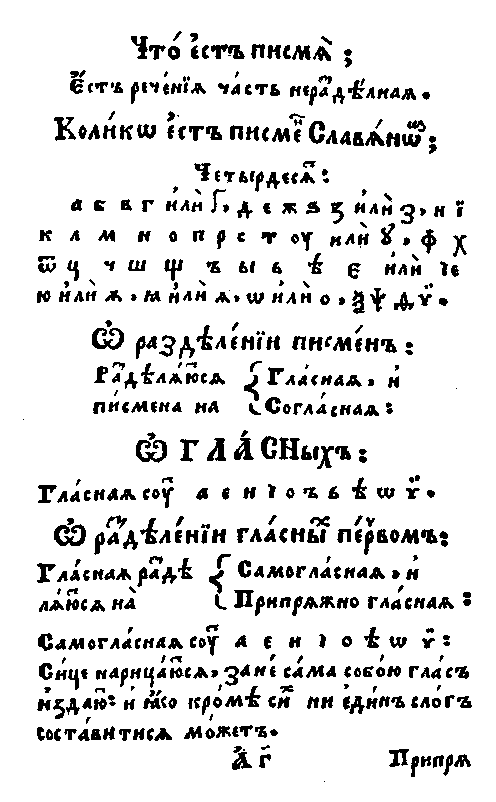 Что́ є҆стъ писмѧ̀ ;
Є҆́стъ рече́нїѧ ча́сть нераⷥдѣ́лнаѧ.
Коли́кѡ є҆́стъ писме́нъ Славѧ́нѡⷨ;
Четырдесѧⷮ:
а б в г и҆лѝ ґ, д е ж ѕ ꙁ и҆лѝ з, и ї
к л м н о п р с т оу и҆лѝ ꙋ, ф х
ѿ ц ч ш щ ъ ы ь ѣ є и҆лѝ ѥ
ю и҆лѝ ѧ, ꙗ и҆лѝ ѧ, ѡ и҆лѝ о, ѯ ѱ ѳ ѵ̈.
Ѽ раздѣле́нїи писме́нъ :
Раⷥдѣлѧ́юⷮсѧ Гла́снаѧ, и҆
пи́смена на Согла́снаѧ:
Ѽ ГЛА́СНыхъ :
Гла́снаѧ соуⷮ а е и і о ъ ь ѣ ѡ ѵ̈.
Ѽ раⷥдѣле́нїи гла́сныⷯ пе́рвомъ:
Гла́снаѧ раⷥдѣ Самогла́снаѧ, и҆
лѧ́юⷮсѧ на̀ Припрѧ́жно гла́снаѧ :
Самогла́снаѧ соуⷮ а е и і о ѣ ѡ ѵ̈ :
Си́це нарица́юⷮсѧ, зане́ са́ма собо́ю гла́съ
и҆здаю́ⷮ: и҆ ꙗ҆́ко кро́мѣ сиⷯ ни є҆ди́нъ сло́гъ
соста́витисѧ мо́жетъ.
А҆ г҃ Припрѧ